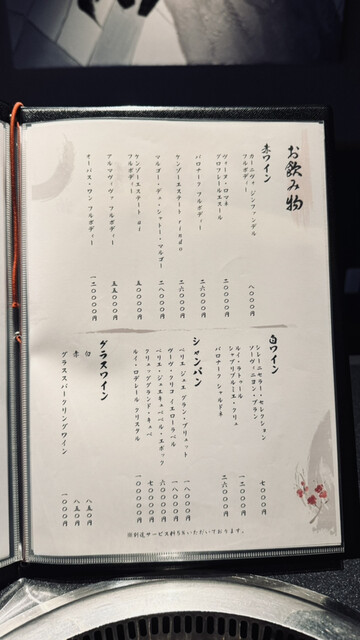 お飲み物
赤ワイン
カーニヴォ ジンファンデル
フルボディー
八〇〇〇円
ヴォーヌ・ロマネ
グロフレール・スール
二〇〇〇〇円
バロナーク フルボディー
二六〇〇〇円
ケンゾーエステート rindo
二六〇〇〇円
マルゴー・デュ・シャトー・マルゴー
二八〇〇〇円
ケンゾーエステート ai
フルボディ
五〇〇〇〇円
アルマヴィヴァ フルボディー
五五〇〇〇円
オーパス・ワン フルボディー
一二〇〇〇〇円
白ワイン
シレーニ セラー・セレクション
ソーヴィニヨン・ブラン
七〇〇〇円
ルイ・ラトゥール
シャブリ プルミエ・クリュ
一二〇〇〇円
バロナーク シャルドネ
二六〇〇〇円
シャンパン
ペリエ・ジュエ グラン・ブリュット
一八〇〇〇円
ヴーヴ・クリコ イエローラベル
一八〇〇〇円
ペリエ・ジュエ キュベ ベル・エポック
六〇〇〇〇円
クリュッグ グランド・キュベ
七〇〇〇〇円
ルイ・ロデレール クリスタル
一〇〇〇〇〇円
グラスワイン
白
八五〇円
赤
八五〇円
グラススパークリングワイン
一〇〇〇円
※別途サービス料5%いただいております。